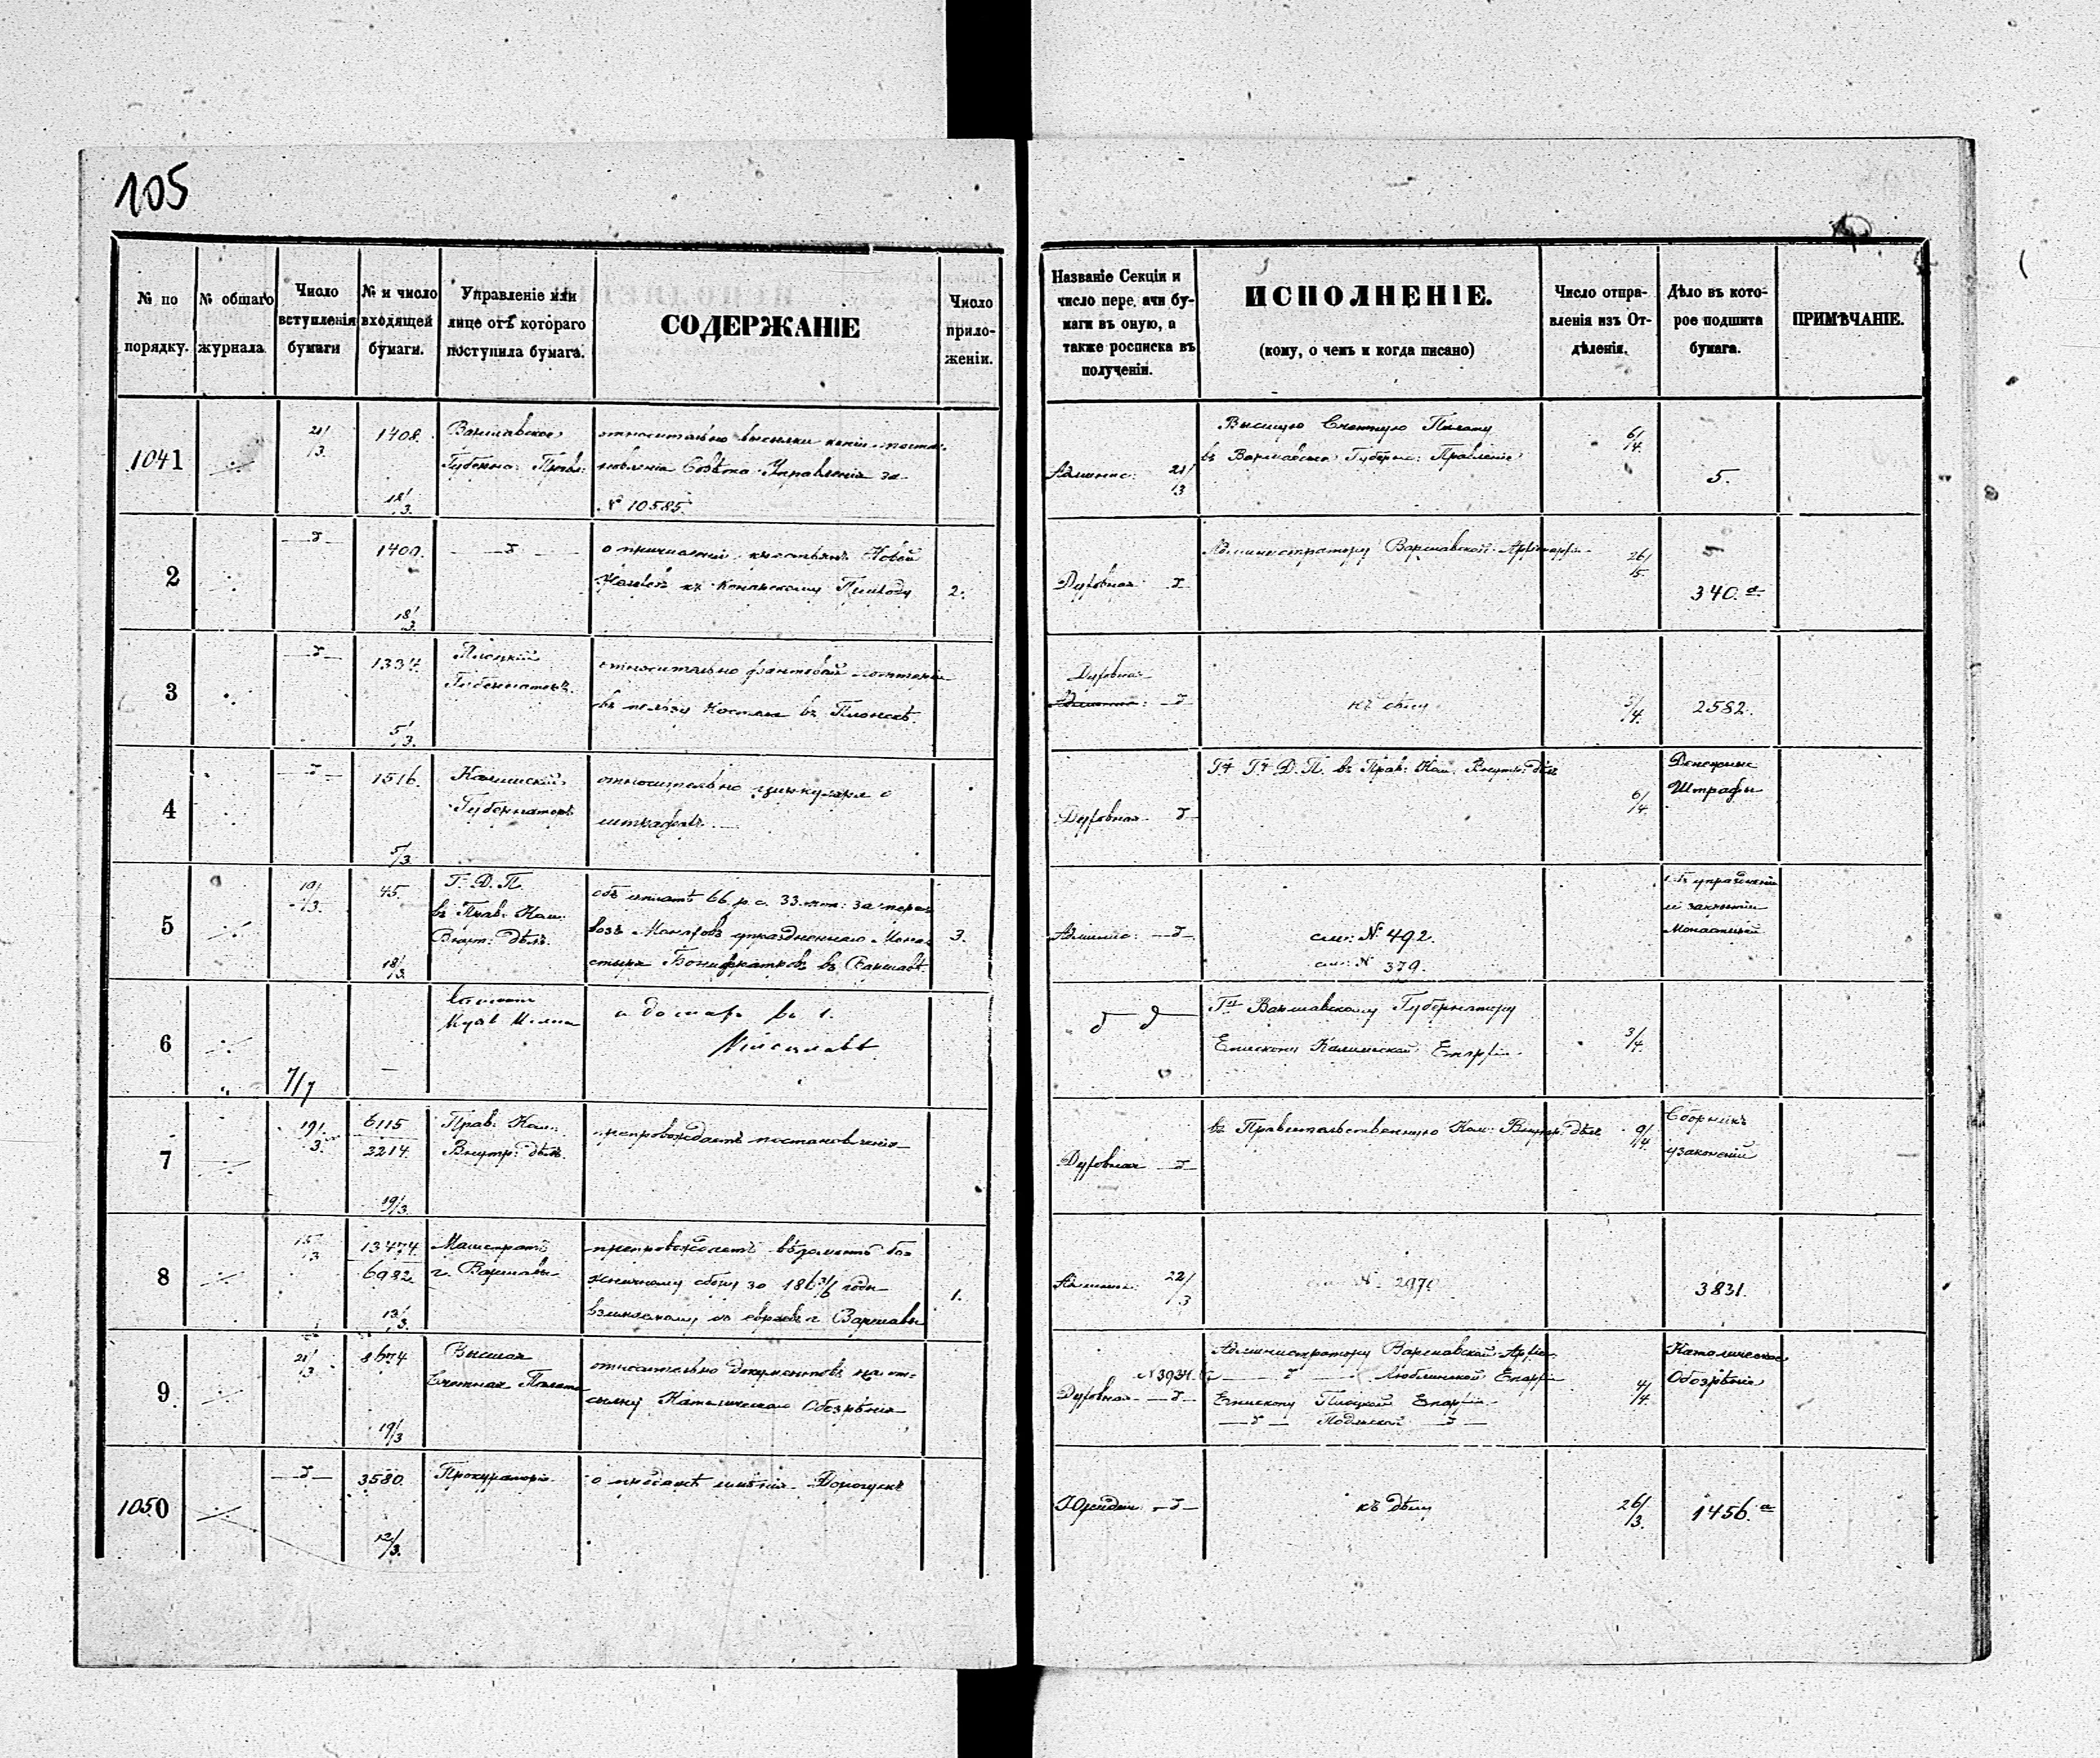 105
№ по порядку.
№ общаго журнала
Число вступленія бумаги
№ и число входящей бумаги.
Управленіе или лице отъ котораго поступила бумага.
СОДЕРЖАНІЕ
Число прило-женіи.
Названіе Секціи и число пере. ачи бу-маги въ оную, а также росписка въ полученіи.
ИСПОЛНЕНІЕ.
(кому, о чемъ и когда писано)
Число отпра-вленія изъ От-дѣленія.
Дѣло въ кото-рое подшита бумага.
ПРИМѢЧАНІЕ.
1041
21/3.
1408.
18/3.
Варшавское
Губернс: Правл:
относительно высылки копіи поста-
новленія Совѣта Управленія за
№ 10585.
Админис: 21/3
Высшую Счетную Палату
въ Варшавское Губернс: Правленіе
6/4.
5.
2
1400.
18/3.
о причисленіи крестьянъ Новой
къ Приходу
2.
Духовная
Администратору Варшавской Архіепархіи
26/5.
340. а
3
1334.
5/3.
Плоцкій
Губернаторъ.
относительно фантовой лоттереи
въ пользу Костела въ Плонскѣ.
Духовная
Админис:
къ дѣлу
5/4.
2582.
4
1516.
5/3.
Калишскій
Губернаторъ
относительно циркуляра о
штрафахъ.
Духовная
Г. Г. Д. П. въ Прав: Ком. Внутр: дѣлъ
6/4.
Денежные
Штрафы
5
19/3.
45.
18/3.
Г. Д. П.
въ Прав: Ком:
Внутр: дѣлъ.
объ уплатѣ 66 р. с. 33 коп: за пере-
возъ Монаховъ упраздненнаго Мона-
стыря Бонифратровъ въ Варшавѣ.
3.
Админис:
см: № 492.
см: № 379.
объ упраздненіи
и закрытіи
Монастырей
6
7/7
Г. Варшавскому Губернатору
Епископу Калишской Епархіи.
3/4.
7
19/3.
6115
2214.
19/3.
Прав: Ком:
Внутр: дѣлъ.
препровождаетъ постановленія
Духовная
въ Правительственную Ком: Внутр: дѣлъ
9/4.
Сборникъ
узаконеній
8
15/3
13474.
6982
13/3.
Магистратъ
г. Варшавы
препровождаетъ вѣдомость бо-
жничному сбору за 186 5/6 годы
взимаемому съ евреевъ г. Варшавы
1.
Админис: 22/3
см: № 2970
3831.
9
21/3
8674
19/3
Высшая
Счетная Палата
относительно документовъ на от-
сылку Католическаго Обозрѣнія
№ 3934.
Духовная
Администратору Варшавской Архіеп.
Люблинской Епархіи
Епископу Плоцкой Епархіи
Подляской
4/4.
Католическое
Обозрѣніе
1050
3580.
12/3.
Прокураторія
о продажѣ имѣнія Дорогускъ
Юридич:
къ дѣлу
26/3.
1456. а